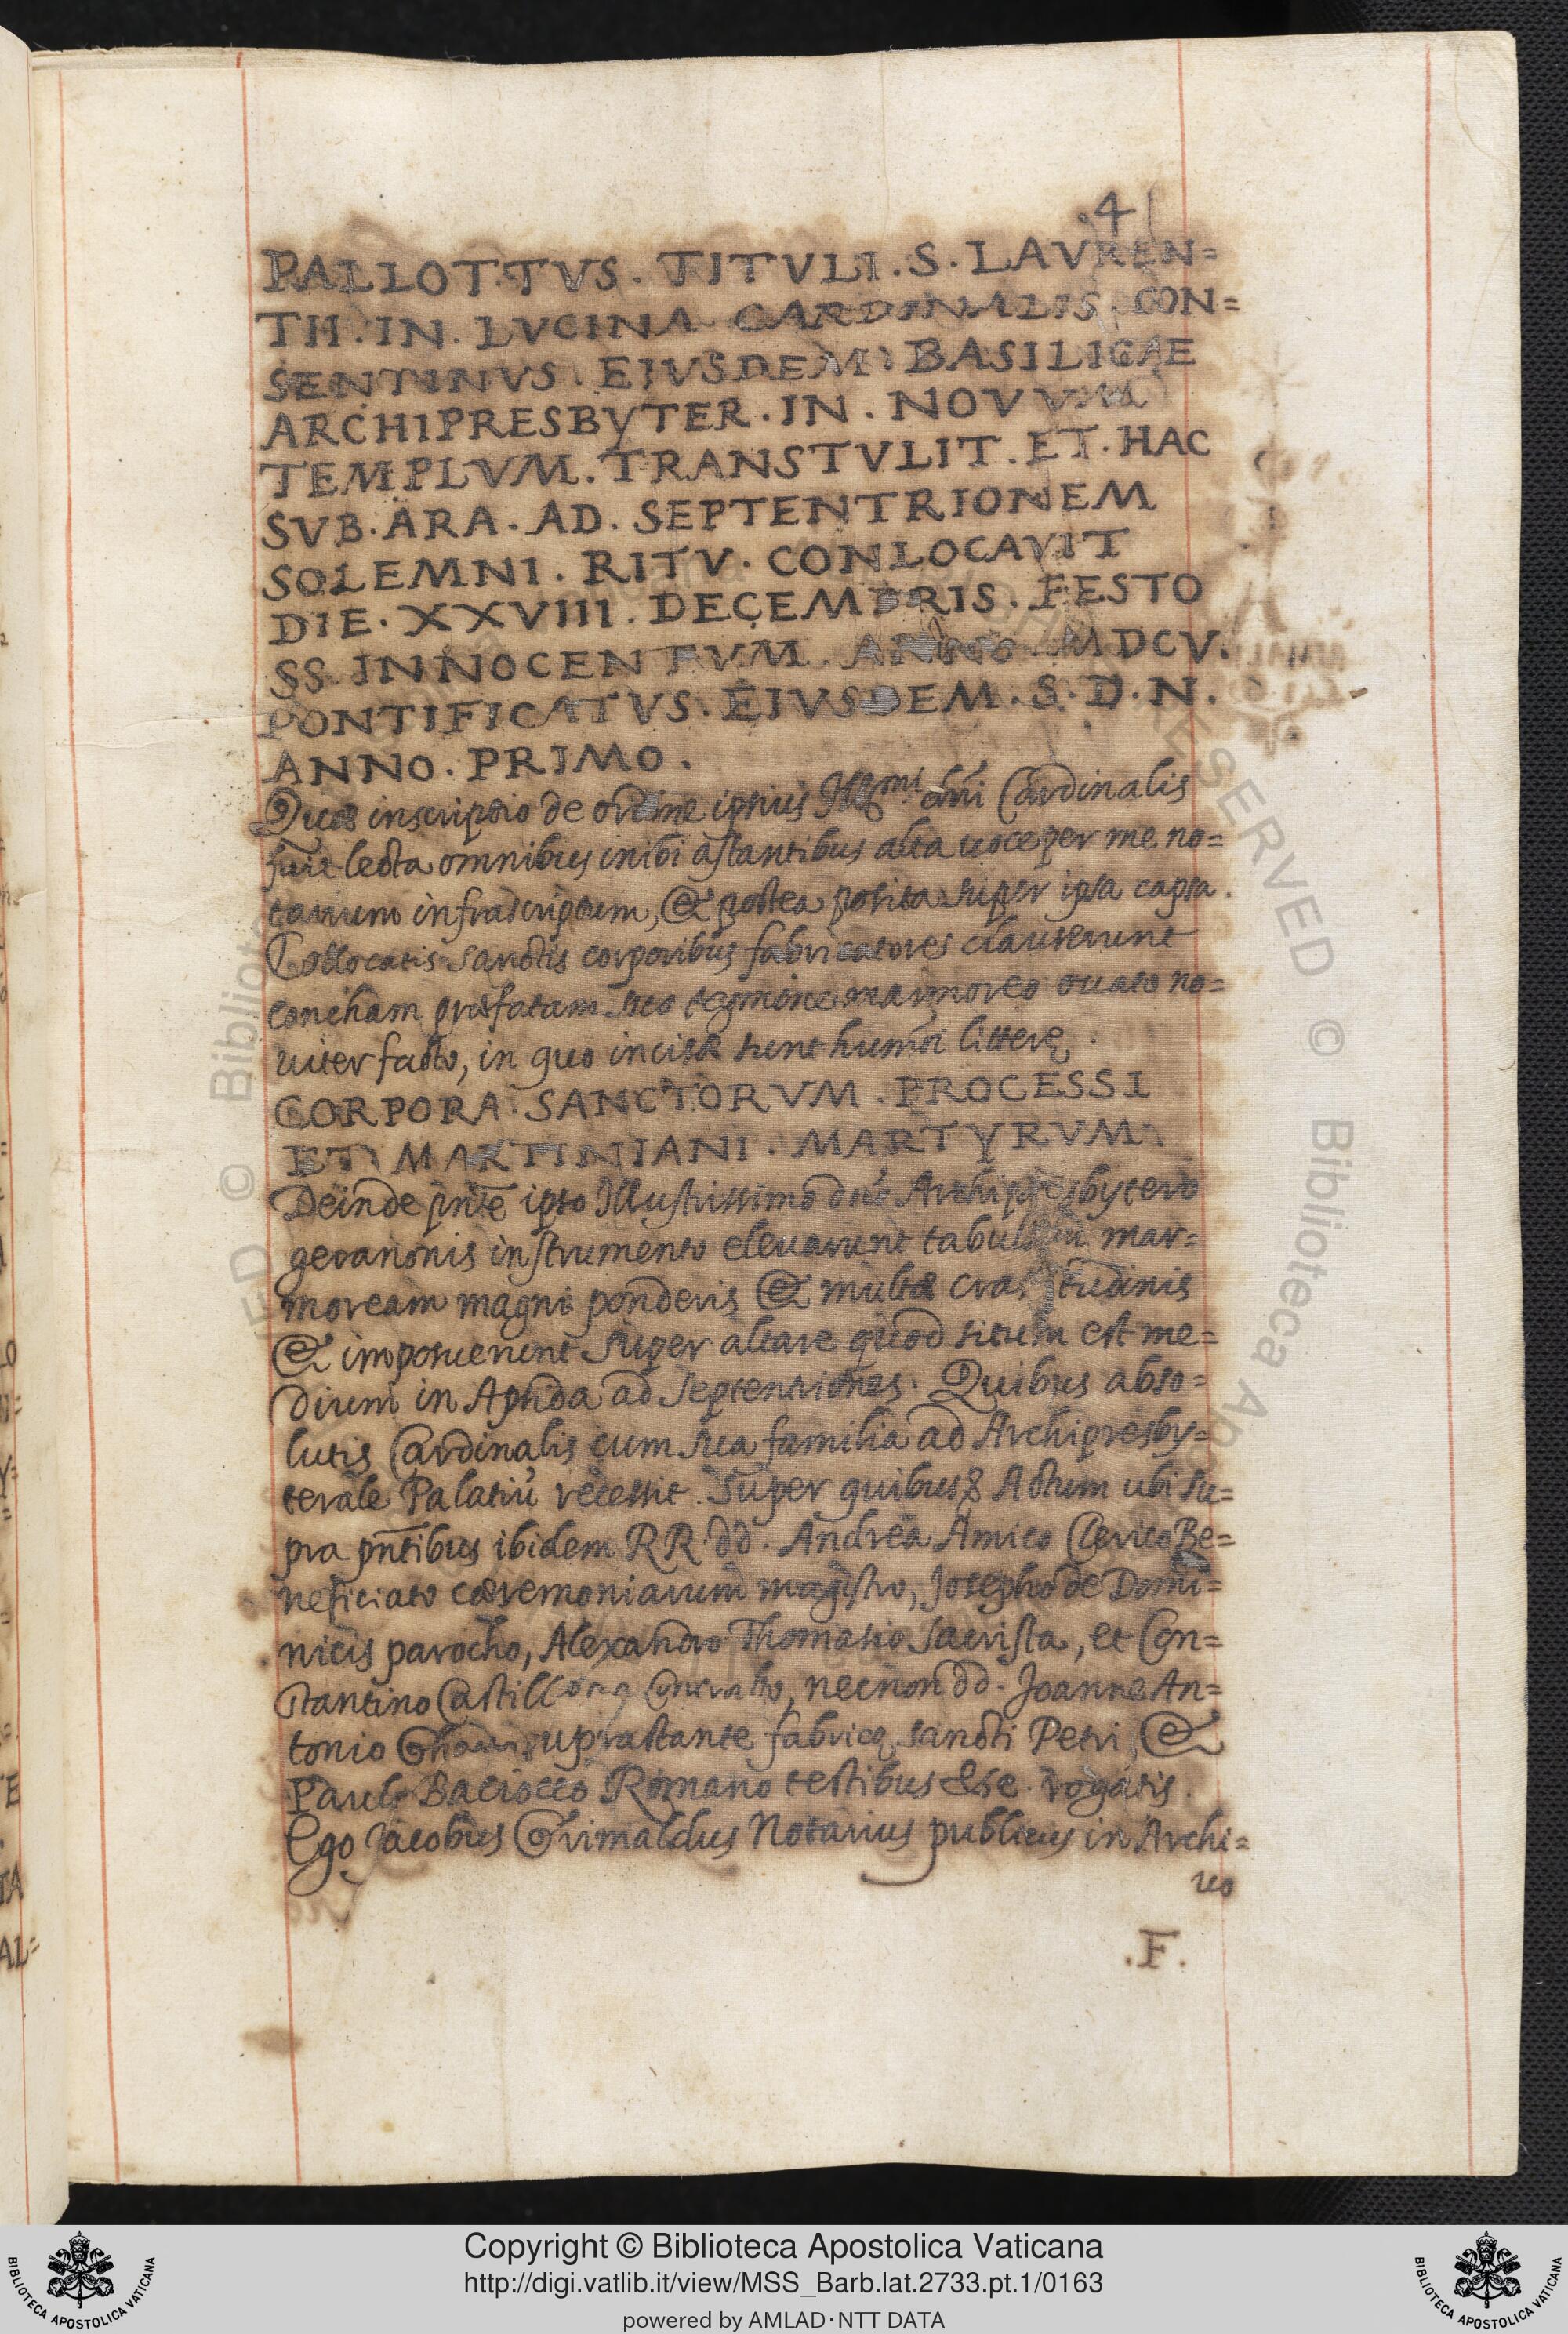 .41
PALLOTTVS. TITVLI. S. LAVREN=
TII. IN. LVCINA CARDINALIS. CON=
SENTINVS. EIVSDEM. BASILICAE
ARCHIPRESBYTER. IN. NOVVM
TEMPLVM. TRANSTVLIT. ET. HAC
SVB. ARA. AD. SEPTENTRIONEM
SOLEMNI. RITV. CONLOCAVIT
DIE. XXVIII. DECEMBRIS. FESTO
SS INNOCENTVM. ANNO MDCV.
PONTIFICATVS. EIVSDEM. S. D. N.
ANNO. PRIMO.
Quæ inscriptio de ordine ipsius Illmi dni Cardinalis
fuit lecta omnibus inibi astantibus alta uoce per me no=
tarium infrascriptum, & postea posita super ipsa capsa.
Collocatis sanctis corporibus fabricatores clauserunt
concham præfatam suo tegmine marmoreo ouato no=
uiter facto, in quo incisæ sunt humõi litterę.
CORPORA. SANCTORVM. PROCESSI
ET. MARTINIANI. MARTYRVM.
Deinde pñte ipso Illustrissimo dno Archipresbytero
geranonis instrumento eleuarunt tabulam mar=
moream magni ponderis & multæ crassitudinis
& imposuerunt super altare quod situm est me=
dium in Apsida ad septentriones. Quibus abso=
lutis Cardinalis cum sua familia ad Archipresby=
terale Palatiũ recessit. Super quibus& Actum ubi su=
pra pñtibus ibidem RR. dd. Andrea Amico Clerico Be=
neficiato cæremoniarum magistro, Josepho de Domi=
nicis parocho, Alexandro Thomasio sacrista, et Con=
stantino Castill, necnon dd. Joanne An=
tonio suprastante fabricę sancti Petri, &
Paulo Baciocco Romano testibus &c. rogatis.
Ego Jacobus Grimaldus Notarius publicus in Archi=
uo
.F.
Copyright © Biblioteca Apostolica Vaticana
http://digi.vatlib.it/view/MSS_Barb.lat.2733.pt.1/0163
powered by AMLAD·NTT DATA
BIBLIOTECA APOSTOLICA VATICANA
BIBLIOTECA APOSTOLICA VATICANA